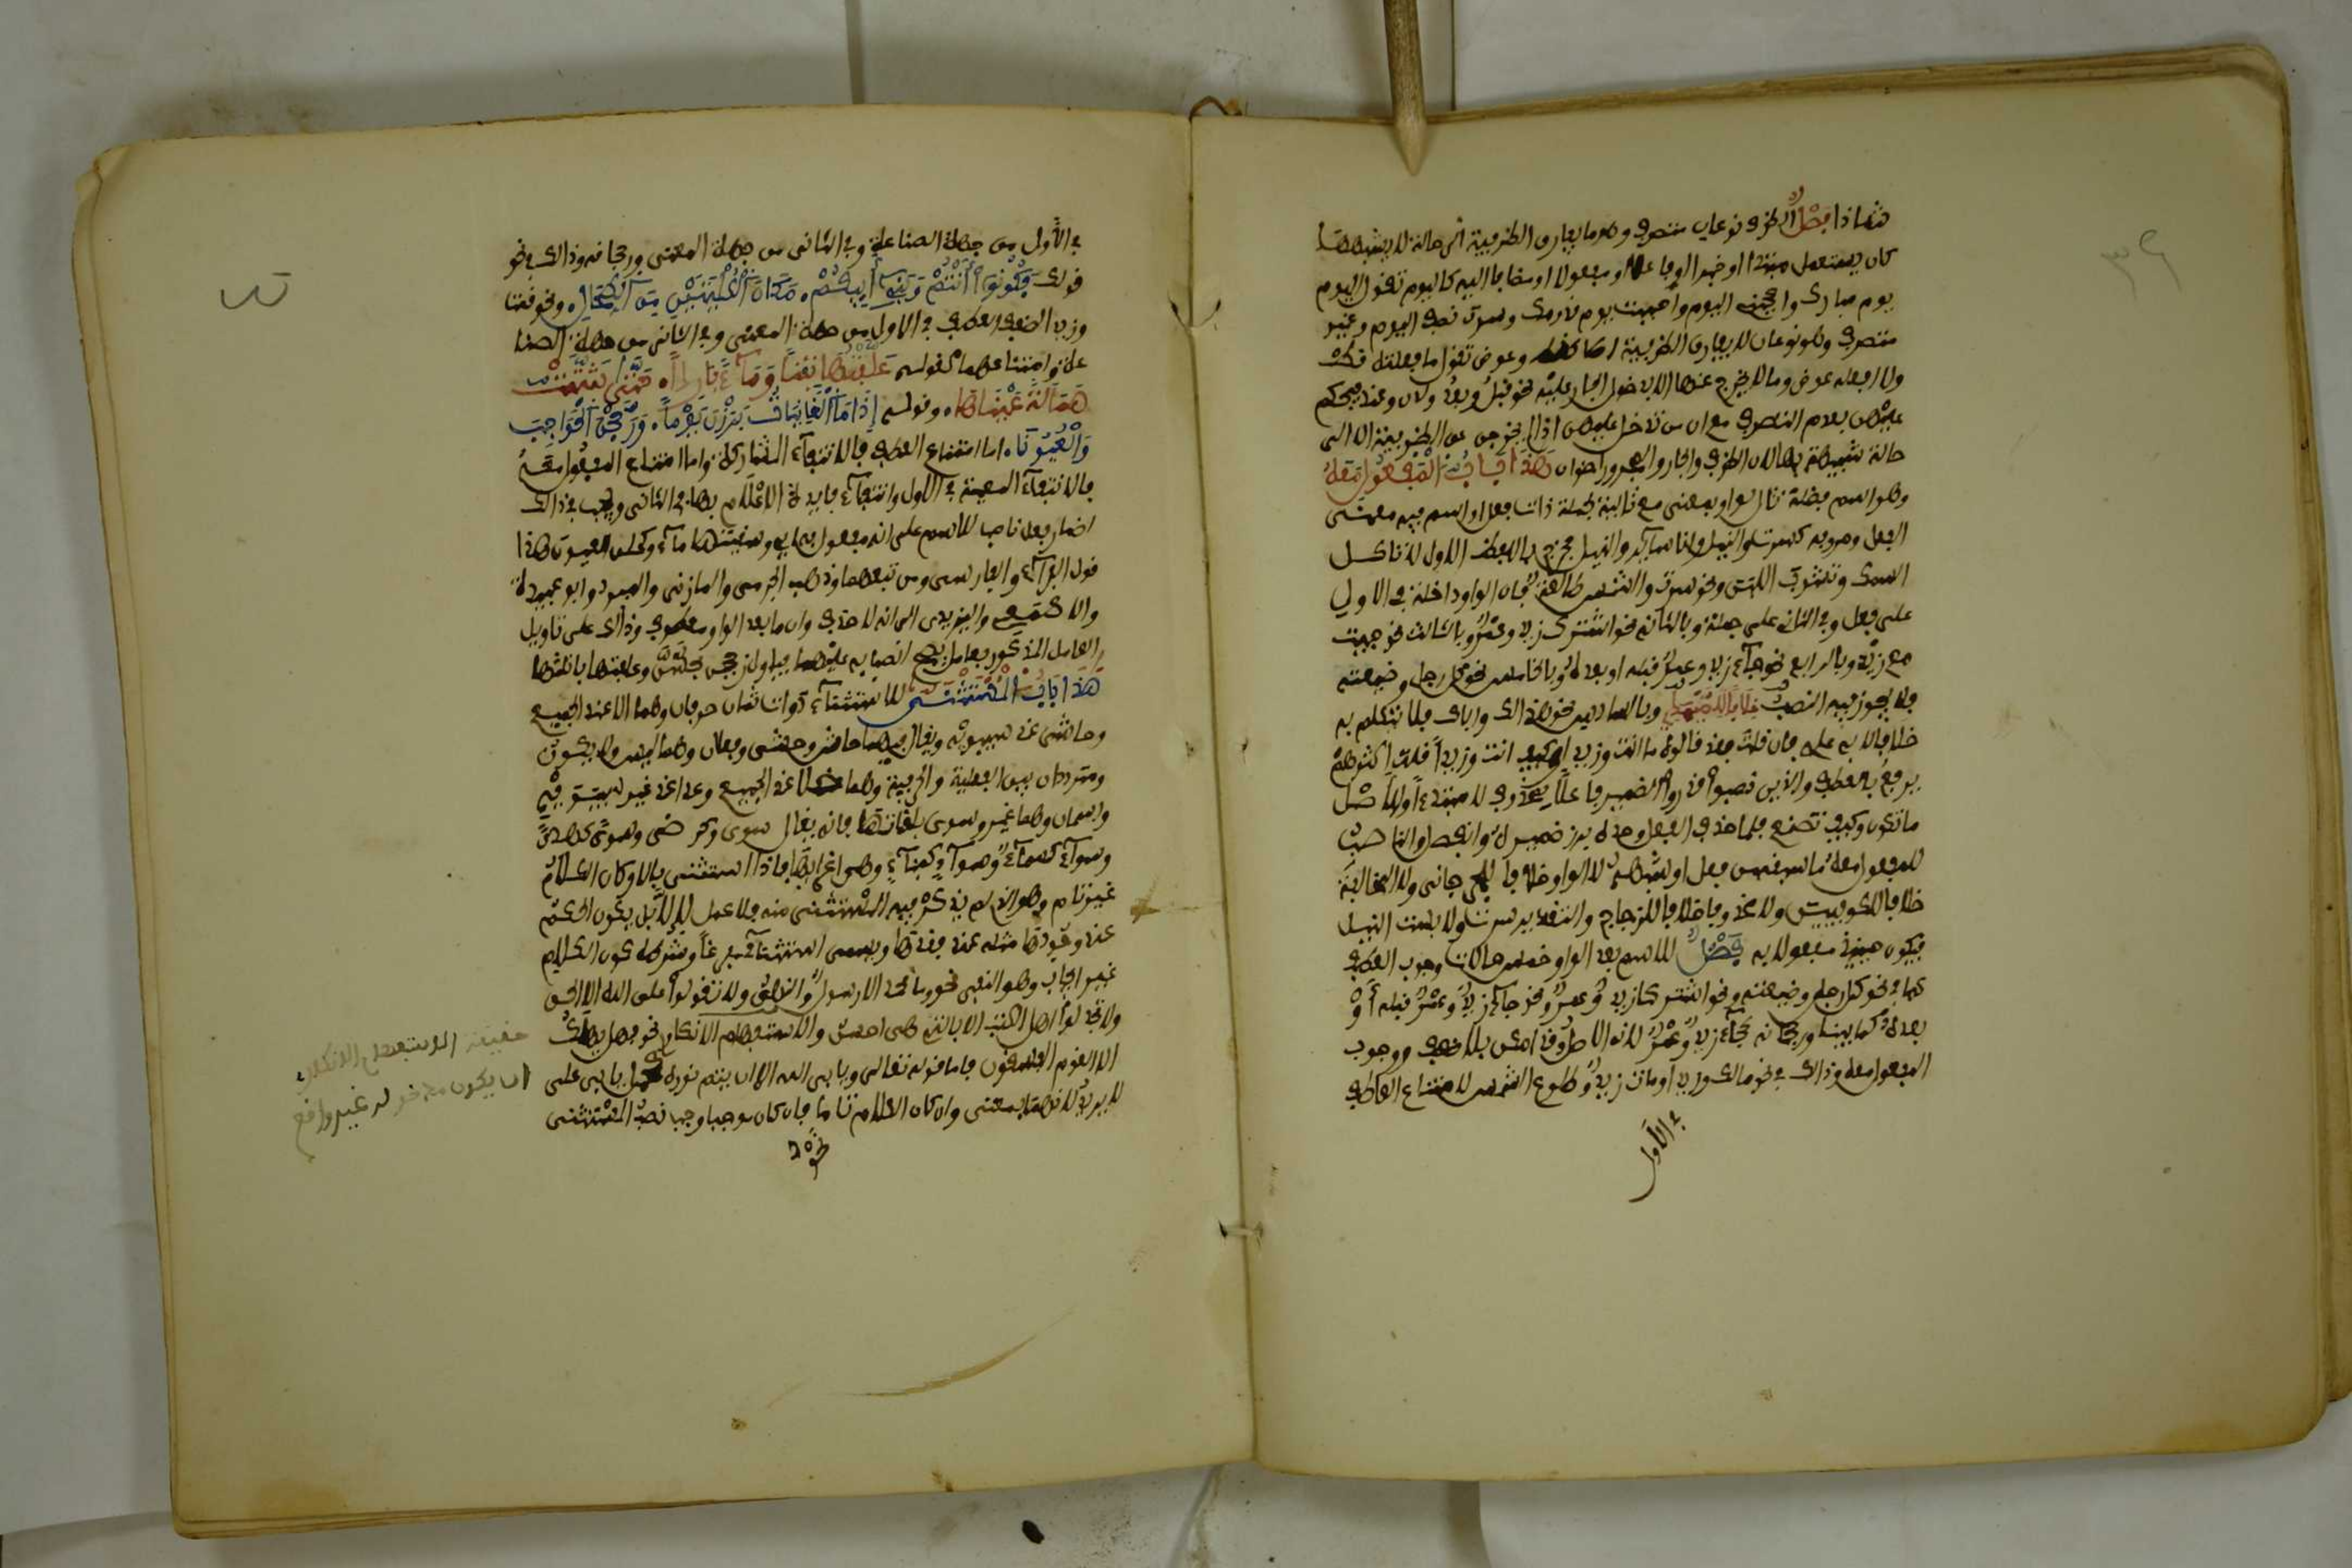 شاذا فصل الظرف نوعان متصرف وهو ما يفارق الظرفية الى حالة لا يشبهها
كان يستعمل مبتدا او خبرا او فاعلا او مفعولا او مضافا اليه كاليوم تقول اليوم
يوم مبارك واعجبنى اليوم واحببت يوم قدومك وسرت نصف اليوم وغير
متصرف وهو نوعان ما لا يفارق الظرفية اصلا كقط وعوض تقول ما فعلته قط
ولا افعله عوض وما لا يخرج عنها الا بدخول الجار عليه نحو قبل وبعد ولدن وعند فيحكم
عليهن بعدم التصرف مع ان من تدخل عليهن اذ لم يخرجن عن الظرفية الا الى
حالة شبيهة بها لان الظرف والجار والمجرور اخوان هذا باب المفعول معه
وهو اسم فضلة تال لواو بمعنى مع تالية لجملة ذات فعل او اسم فيه معنى
الفعل وحروفه كسرت والنيل وانا سائر والنيل فخرج باللفظ الاول لا تاكل
السمك وتشرب اللبن ونحو سرت والشمس طالعة فان الواو داخلة في الاول
على فعل وفي الثاني على جملة وبالثاني نحو اشترك زيد وعمرو وبالثالث نحو جئت
مع زيد وبالرابع نحو جاء زيد وعمرو قبله او بعده وبالخامس نحو كل رجل وضيعته
فلا يجوز فيه النصب خلافا للصيمري وبالسادس نحو هذا لك واباك فلا يتكلم به
خلافا لابي علي فان قلت فقد قالوا ما انت وزيدا وكيف انت وزيدا قلت اكثرهم
يرفع بالعطف والذين نصبوا قدروا الضمير فاعلا لمحذوف لا مبتدءا والاصل
ما تكون وكيف تصنع فلما حذف الفعل وحده برز ضميره وانفصل والناصب
للمفعول معه ما سبقه من فعل او شبهه لا الواو خلافا للجرجاني ولا المخالفة
خلافا للكوفيين ولا محذوف خلافا للزجاج والتقدير سرت ولابست النيل
فيكون حينئذ مفعولا به فصل للاسم بعد الواو خمس حالات وجوب العطف
كما في نحو كل رجل وضيعته ونحو اشترك زيد وعمرو ونحو جاء زيد وعمرو قبله او
بعده لما بينا ورجحانه كجاء زيد وعمرو لانه الاصل وقد امكن بلا ضعف ووجوب
المفعول معه وذلك في نحو مالك وزيدا ومات زيد وطلوع الشمس لامتناع العطف
في الاول
في الاول من جهة الصناعة وفي الثاني من جهة المعنى ورجحانه وذلك في نحو
قولك فكونوا انتم وبني ابيكم مكان الكليتين من الطحال ونحو قمت
وزيدا لضعف العطف في الاول من جهة المعنى وفي الثاني من جهة الصنا
عة وامتناعهما كقوله علفتها تبنا وماء باردا حتى شتت
همالة عيناها وقوله اذا ما الغانيات برزن يوما وزججن الحواجب
والعيونا اما امتناع العطف فلانتفاء المشاركة واما امتناع المفعول معه
فلانتفاء المعية في الاول وانتفاء فايدة الاعلام بها في الثاني ويجب في ذلك
اضمار فعل ناصب للاسم على انه مفعول به اي وسقيتها ماء وكحلن العيون هذا
قول الفراء والفارسي ومن تبعهما وذهب الجرمي والمازني والمبرد وابو عبيدة
والاصمعي واليزيدي الى انه لا حذف وان ما بعد الواو معطوف وذلك على تاويل
العامل المذكور بعامل يصح انصبابه عليهما فياول زججن بحسن وعلفتها بانلتها
هذا باب المستثنى للاستثناء ادوات ثمان حرفان وهما الا عند الجميع
وحاشى عند سيبويه ويقال فيها حاش وحشى وفعلان وهما ليس ولا يكون
ومترددان بين الفعلية والحرفية وهما خلا عند الجميع وعدا عند غير سيبويه
واسمان وهما غير وسوى بلغاتها فانه يقال سوى كرضى وسوى كهدى
وسواء كسماء وسواء كبناء وهي اغربها فاذا استثني بالا وكان الكلام
غير تام وهو الذي لم يذكر فيه المستثنى منه فلا عمل لالا بل يكون الحكم
عند وجودها مثله عند فقدها ويسمى استثناء مفرغا وشرطه كون الكلام
غير ايجاب وهو النفي نحو وما محمد الا رسول والنهي ولا تقولوا على الله الا الحق
ولا تجادلوا اهل الكتب الا بالتي هي احسن والاستفهام الانكاري نحو فهل يهلك
الا القوم الفسقون فاما قوله تعالى ويابى الله الا ان يتم نوره فحمل يابى على
لا يريد لانهما بمعنى وان كان الكلام تاما فان كان موجبا وجب نصب المستثنى
نحو
حقيقة الاستفهام الانكاري
ان يكون مدخوله غير واقع